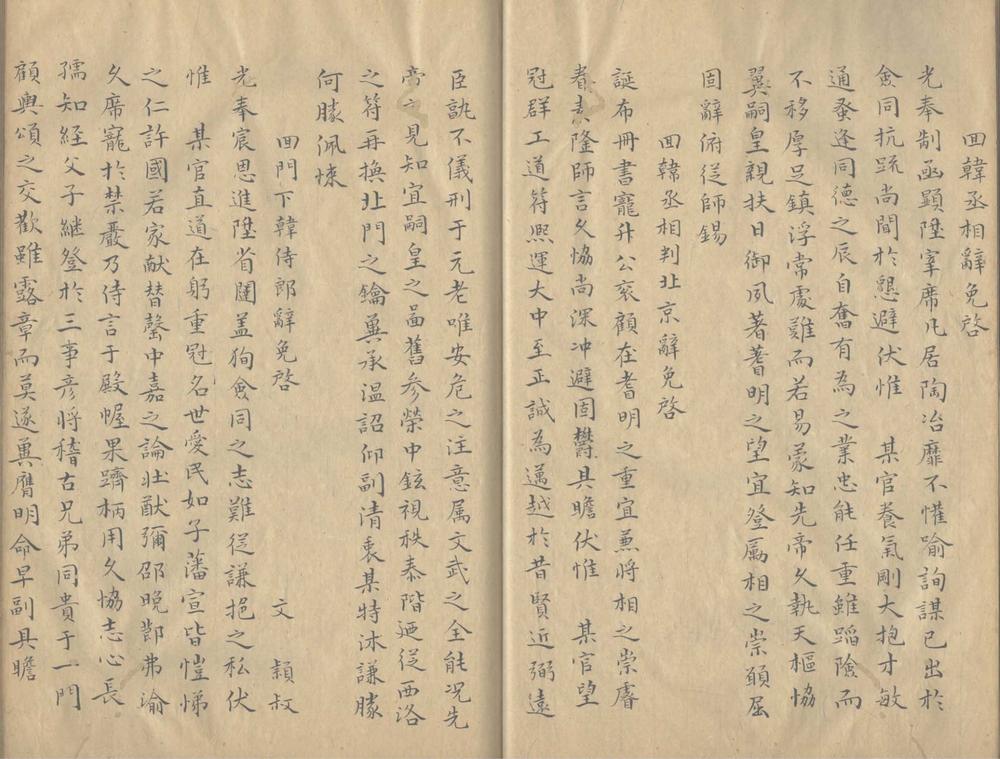 回韓丞相辭免啓
光奉制函顯陞宰席凡居陶冶靡不懽喻詢謀已出於
僉同抗䟽尚間於懇避伏惟　某官養氣剛大抱才敏
通蚤逢同德之辰自奮有為之業忠能任重雖蹈險而
不移厚足鎮浮常處難而若易蒙知先帝久執天樞協
翼嗣皇親扶日御夙著蓍明之望宜登厲相之崇願屈
固辭俯從師錫
回韓丞相判北京辭免啓
誕布冊書寵升公衮顧在蓍明之重宜兼將相之崇睿
眷隆師言久協尚深冲避固欝具瞻伏惟　某官望
冠群工道符熙運大中至正誠為邁越於昔賢近弼遠
臣訛不儀刑于元老唯安危之注意属文武之全能况先
帝之見知宜嗣皇之啚舊參榮中鉉視秩泰階廼從西洛
之符再換北門之鑰兾承温詔仰副清衷某特沐謙牋
何勝佩悚
回門下韓侍郎辭免啓　文頴叔
光奉宸恩進陞省闥盖狥僉同之志難從謙挹之私伏
惟　某官直道在躬重冠名世愛民如子藩宣皆愷悌
之仁許國若家献替罄中嘉之論壮猷彌邵晚節弗渝
久席寵於禁嚴乃侍言于殿幄果躋柄用久協志心長
孺知経父子継登於三事彦將稽古兄弟同貴于一門
顧輿頌之交歡雖露章而莫遂兾膺明命早副具瞻